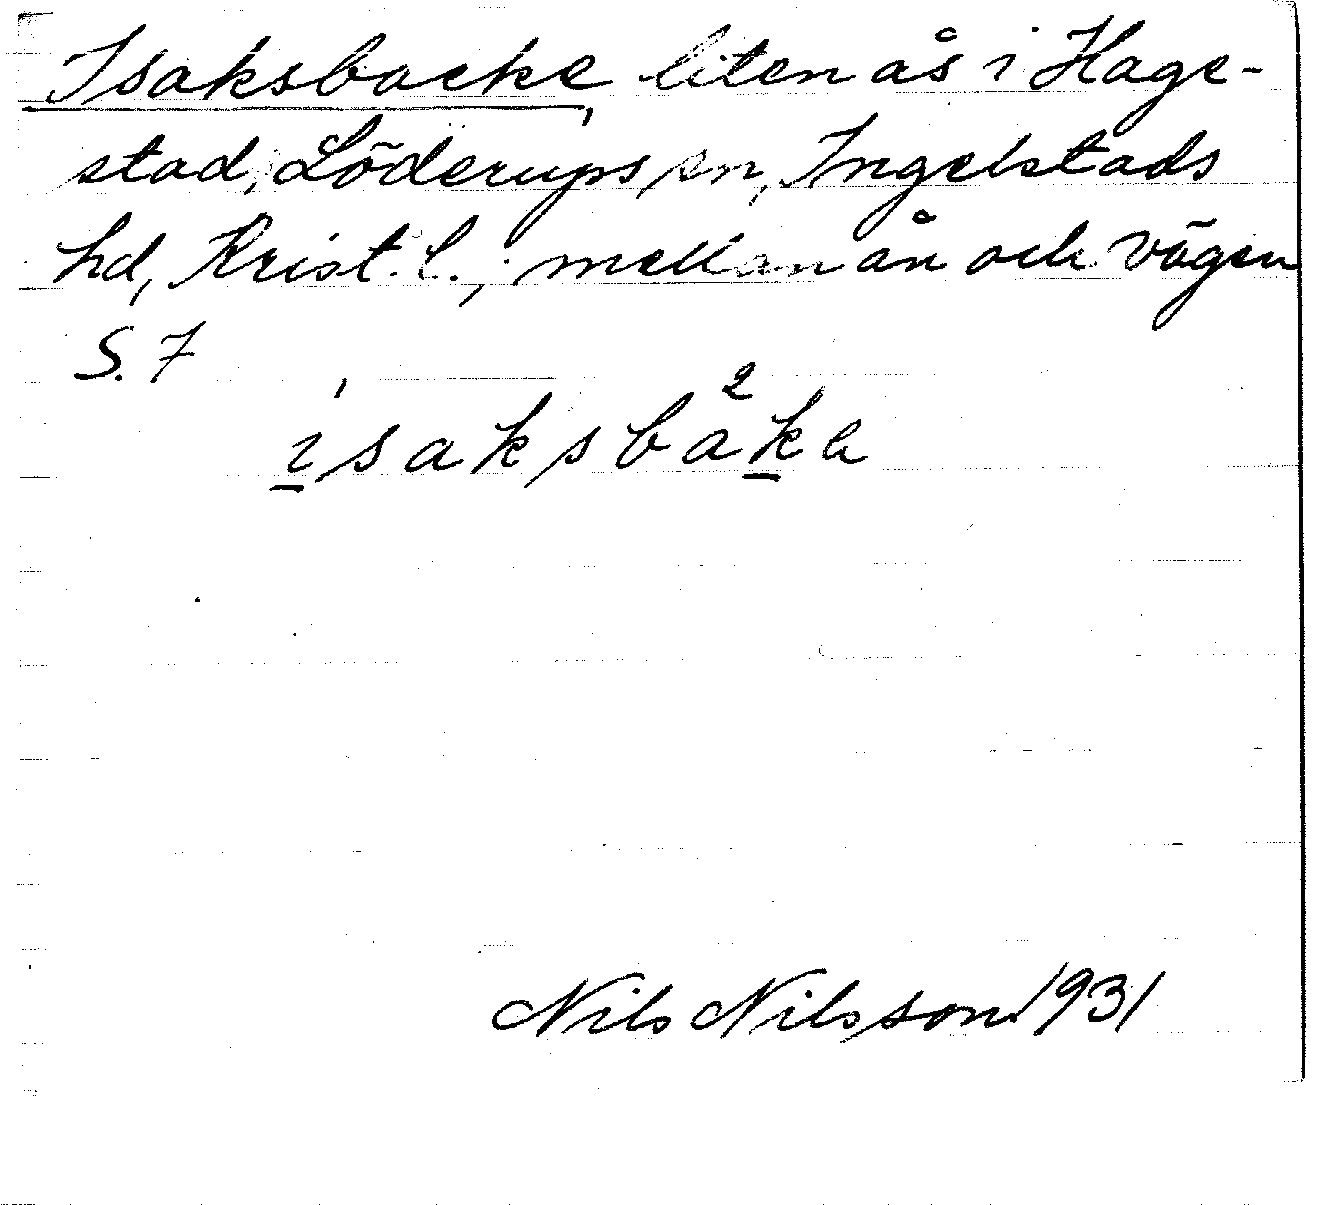 Isaksbacke, liten ås i Hage-
stad, Löderups sn, Ingelstads
hd, Krist. l., mellan ån och vägen
S. 7
í̱saksbà²ḵa
Nils Nilsson 1931